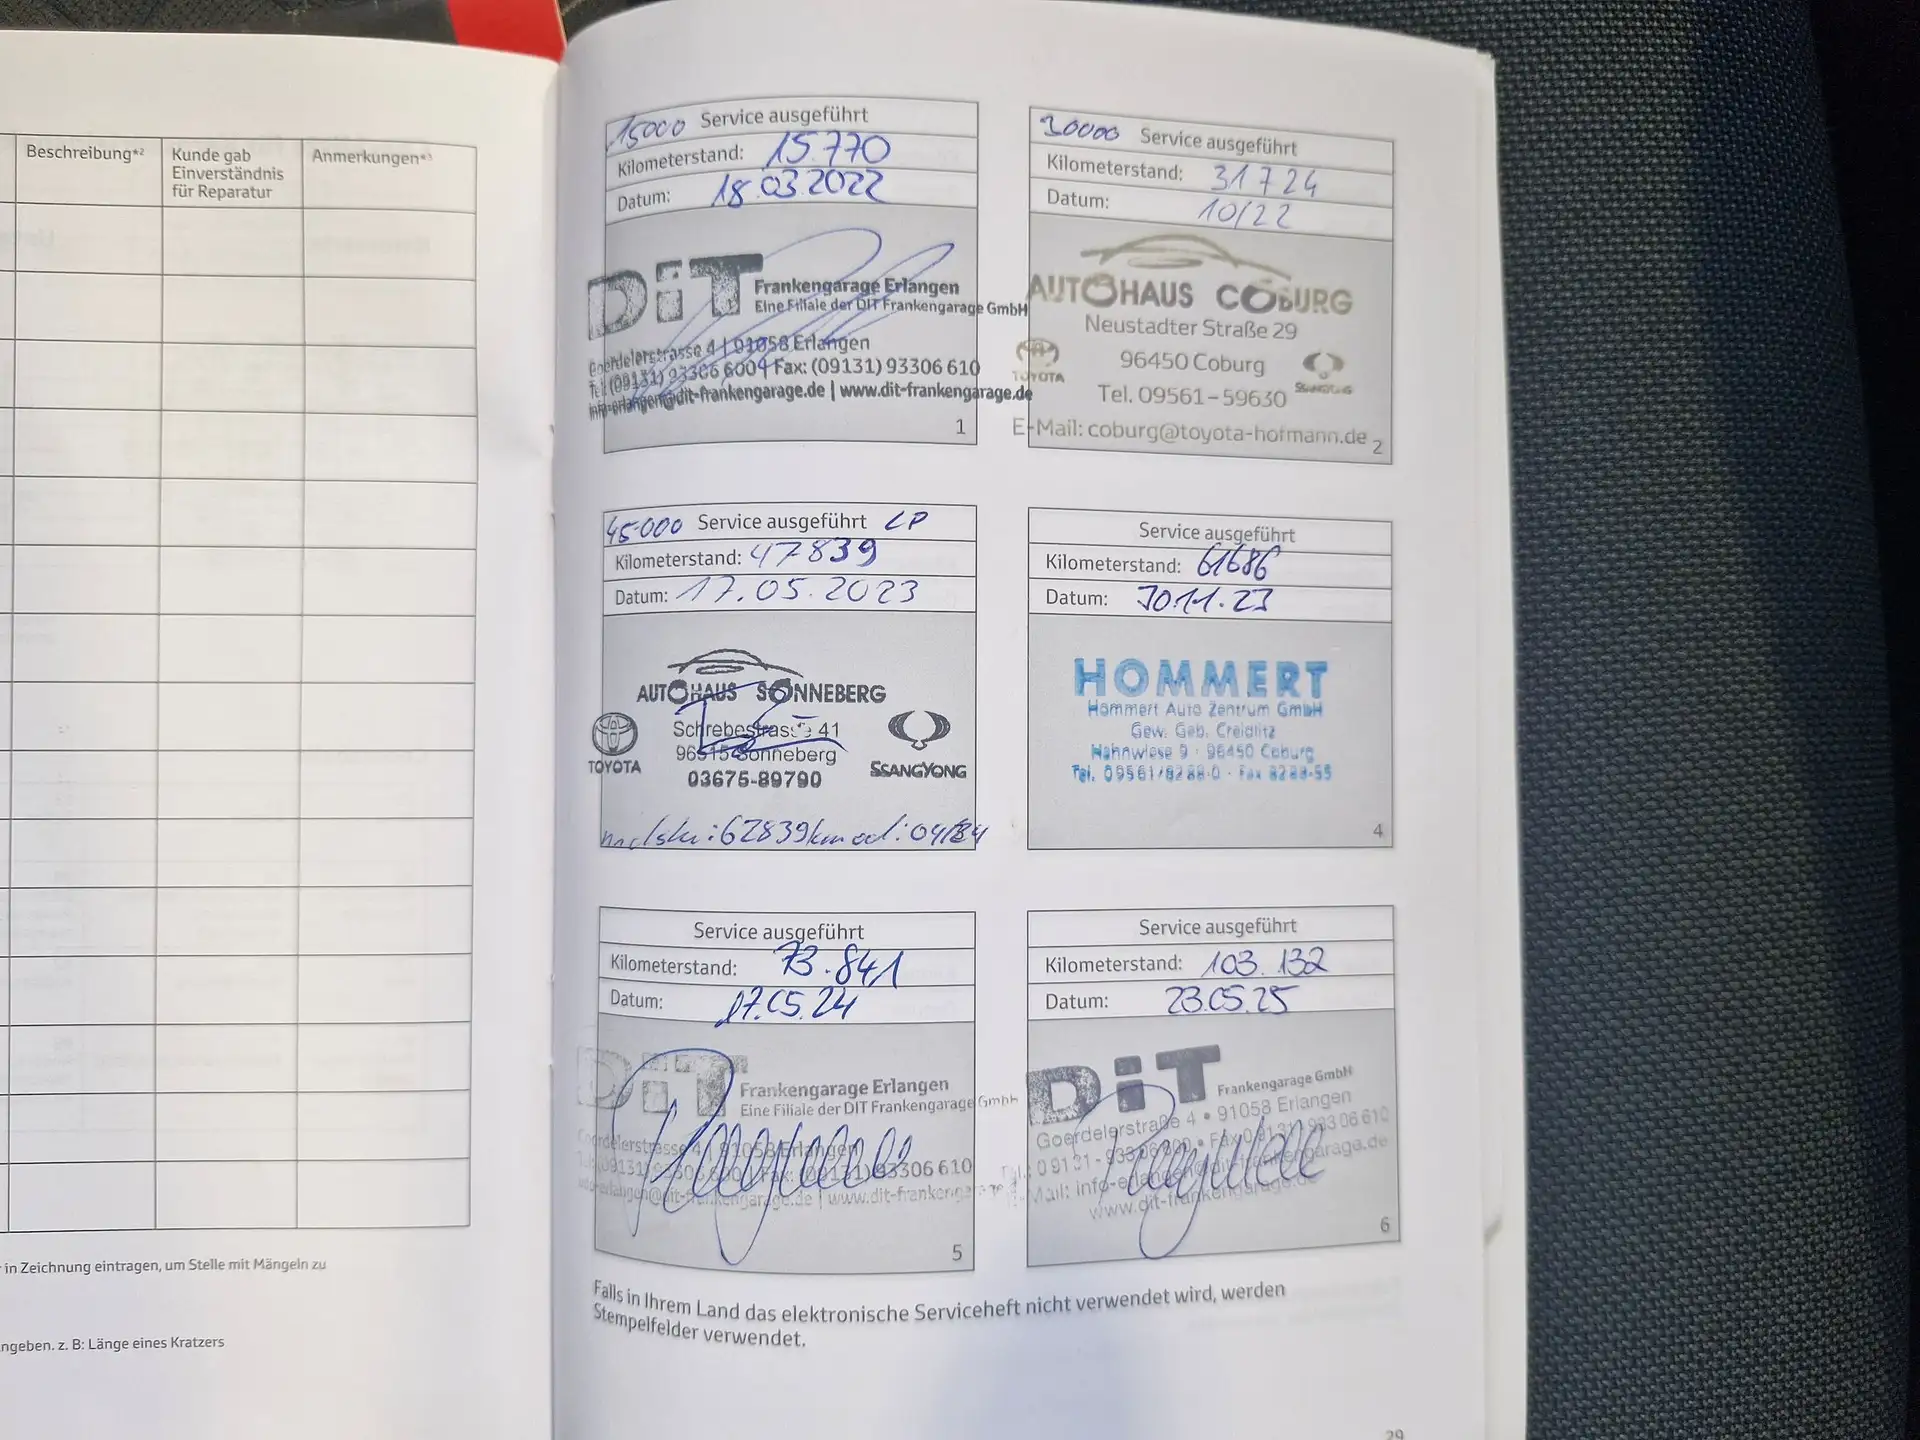 Beschreibung*²
Kunde gab
Einverständnis
für Reparatur
Anmerkungen*³
in Zeichnung eintragen, um Stelle mit Mängeln zu
ngeben. z. B: Länge eines Kratzers
15000 Service ausgeführt
Kilometerstand: 15.770
Datum: 18.03.2022
DiT
Frankengarage Erlangen
Eine Filiale der DIT Frankengarage GmbH
Goerdelerstrasse 4 | 91058 Erlangen
Tel. (09131) 93306 600 | Fax: (09131) 93306 610
info-erlangen@dit-frankengarage.de | www.dit-frankengarage.de
1
30000 Service ausgeführt
Kilometerstand: 31724
Datum: 10/22
AUTOHAUS COBURG
Neustadter Straße 29
96450 Coburg
TOYOTA
SSANGYONG
Tel. 09561-59630
E-Mail: coburg@toyota-hofmann.de
2
45000 Service ausgeführt LP
Kilometerstand: 47839
Datum: 17.05.2023
AUTOHAUS SONNEBERG
Schrebestrasse 41
96515 Sonneberg
03675-89790
TOYOTA
SSANGYONG
62839km od.: 04/24
Service ausgeführt
Kilometerstand: 61686
Datum: 30.11.23
HOMMERT
Hommert Auto Zentrum GmbH
Gew. Geb. Creidlitz
Hahnwiese 9 · 96450 Coburg
Tel. 09561/8288-0 · Fax 8288-55
4
Service ausgeführt
Kilometerstand: 73.841
Datum: 17.05.24
DiT
Frankengarage Erlangen
Eine Filiale der DIT Frankengarage GmbH
Goerdelerstrasse 4 | 91058 Erlangen
Tel. (09131) 93306 600 | Fax: (09131) 93306 610
info-erlangen@dit-frankengarage.de | www.dit-frankengarage.de
5
Service ausgeführt
Kilometerstand: 103.132
Datum: 23.05.25
DiT
Frankengarage GmbH
Goerdelerstraße 4 • 91058 Erlangen
Tel.: 09131-93306600 • Fax 09131-93306610
Mail: info-erlangen@dit-frankengarage.de
www.dit-frankengarage.de
6
Falls in Ihrem Land das elektronische Serviceheft nicht verwendet wird, werden
Stempelfelder verwendet.
29